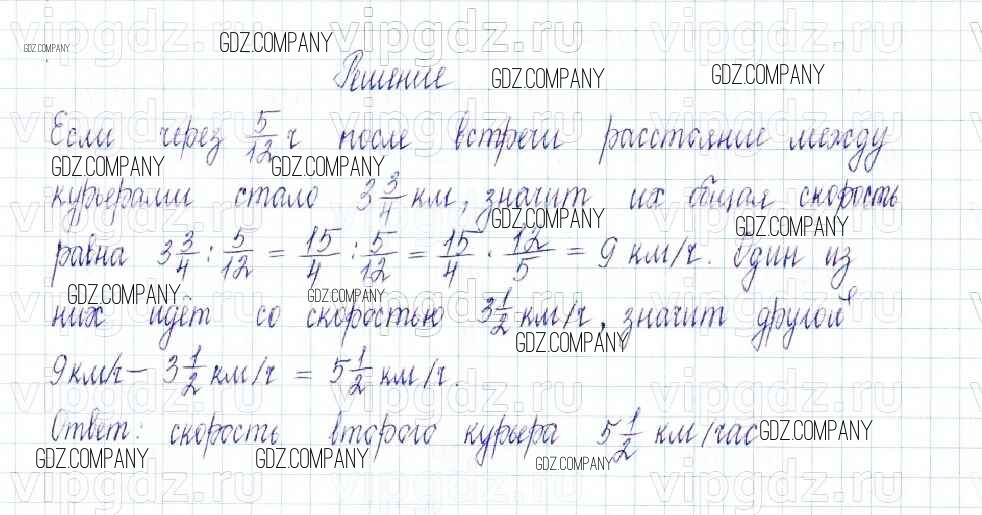 GDZ.COMPANY
GDZ.COMPANY
Решение
GDZ.COMPANY
GDZ.COMPANY
Если через 5/12 ч после встречи расстояние между
GDZ.COMPANY
GDZ.COMPANY
курьерами стало 3 3/4 км, значит их общая скорость
GDZ.COMPANY
GDZ.COMPANY
равна 3 3/4 : 5/12 = 15/4 : 5/12 = 15/4 · 12/5 = 9 км/ч. Один из
GDZ.COMPANY
GDZ.COMPANY
них идёт со скоростью 3 1/2 км/ч, значит другой
GDZ.COMPANY
9км/ч – 3 1/2 км/ч = 5 1/2 км/ч.
Ответ: скорость второго курьера 5 1/2 км/час
GDZ.COMPANY
GDZ.COMPANY
GDZ.COMPANY
GDZ.COMPANY
vipgdz.ru